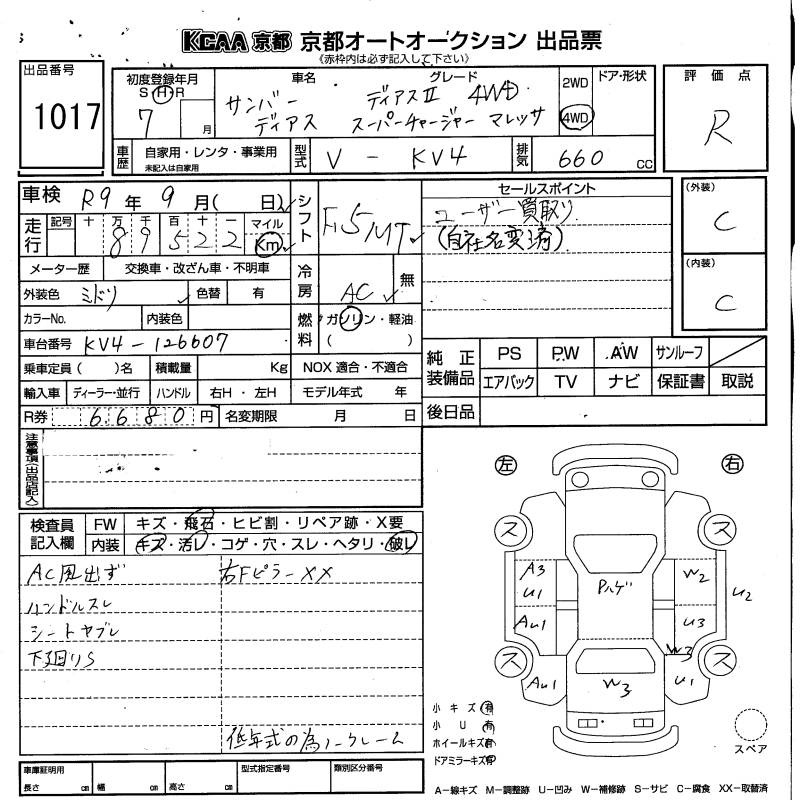 KCAA 京都 京都オートオークション 出品票
《赤枠内は必ず記入して下さい》
出品番号
1017
初度登録年月
S H R
7 月
車名
サンバー
ディアス
グレード
ディアスⅡ 4WD
スーパーチャージャー マレッサ
2WD
4WD
ドア・形状
評価点
R
車歴
自家用・レンタ・事業用
未記入は自家用
型式
V - KV4
排気
660 cc
車検 R9年 9月( 日)
走行
記号 十 万 千 百 十 一 マイル
8 9 5 2 2 Km
シフト
F5MT
セールスポイント
ユーザー買取り
(自社名変済)
(外装)
C
(内装)
C
メーター歴 交換車・改ざん車・不明車
冷房
AC
無
外装色 ミドリ 色替 有
カラーNo. 内装色
燃料
ガソリン・軽油
( )
車台番号 KV4-126607
乗車定員( )名 積載量 Kg NOX 適合・不適合
輸入車 ディーラー・並行 ハンドル 右H・左H モデル年式 年
R券 6680円 名変期限 月 日
純正装備品
PS PW AW サンルーフ
エアバック TV ナビ 保証書 取説
後日品
注意事項(出品店記入)
検査員記入欄
FW キズ・飛石・ヒビ割・リペア跡・X要
内装 キズ・汚レ・コゲ・穴・スレ・ヘタリ・破レ
AC風出ず
右Fピラー XX
ハンドルスレ
シートヤブレ
下廻りS
低年式の為ノークレーム
左 右
ス ス
A3
U1
Pハゲ
W2
U2
AU1
U3
W3
ス ス
AU1
W3
U1
小キズ 有
小U 有
ホイールキズ 有
ドアミラーキズ 有
スペア
車庫証明用
長さ cm 幅 cm 高さ cm
型式指定番号
類別区分番号
A－線キズ M－調整跡 U－凹み W－補修跡 S－サビ C－腐食 XX－取替済